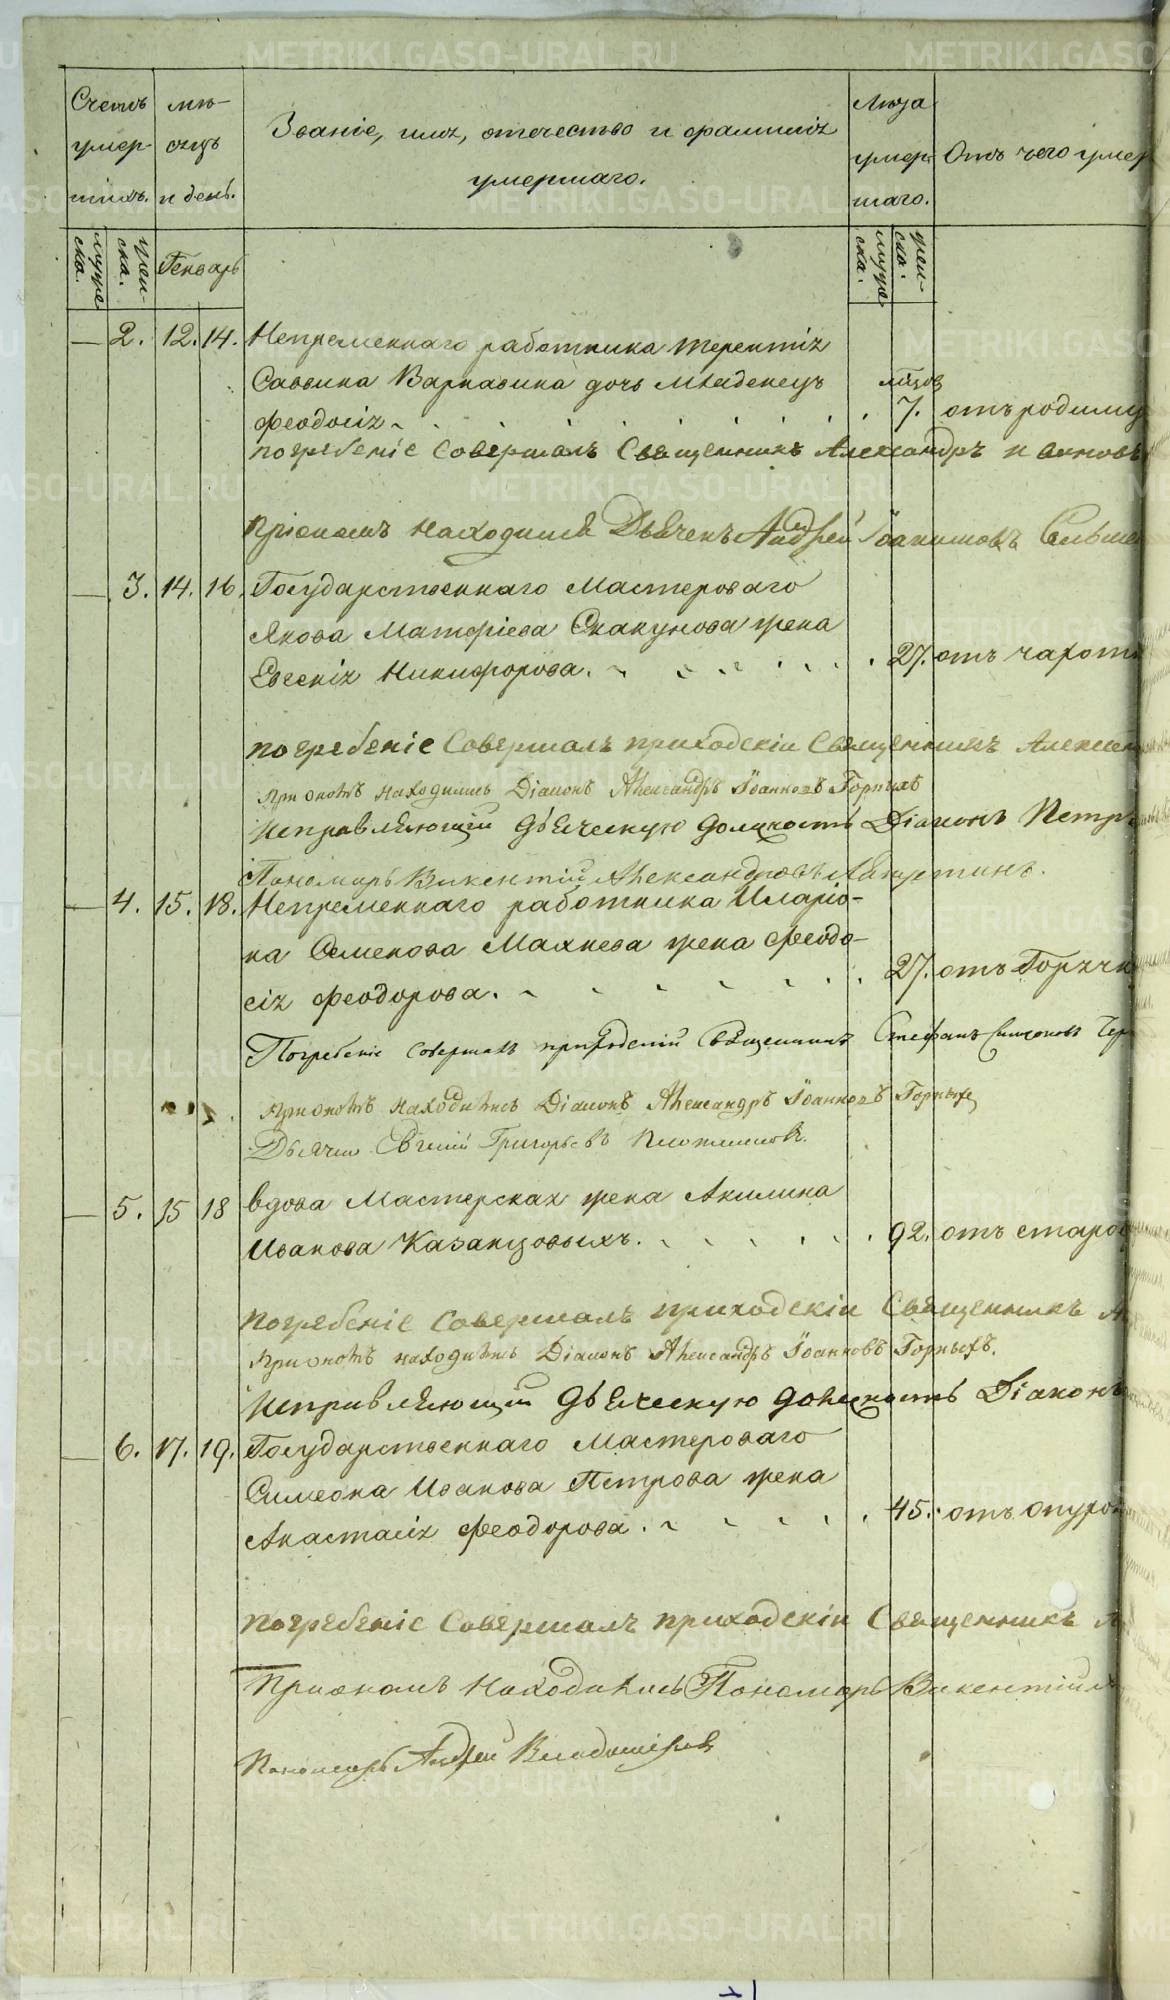 Счетъ умер- шихъ.
мѣ- сяцъ и день.
Званіе, имя, отечество и фамилія умершаго.
Лѣта умер- шаго.
Отъ чего умер
муже- ска.
жен- ска.
Генварь
муже- ска.
жен- ска.
— 2. 12. 14. Непременнаго работника Терентія
Саввина Варнавина дочь младенецъ мѣсяцов
Феодосія 7. отъ родимц
погребеніе Совершалъ Священникъ Александръ
при семъ находился Дьячекъ Андрей Іоакимовъ
— 3. 14. 16. Государственнаго Мастероваго
Якова Матфіева Скакунова жена
Евгенія Никифорова. 27. отъ чахотк
погребеніе Совершалъ приходскій Священникъ Алексан
при ономъ находились Діаконъ Александръ Іоанновъ Горныхъ
исправляющій дьяческую должность Діаконъ Петръ
Пономарь Викентій Александровъ
— 4. 15. 18. Непременнаго работника Иларіо-
на Семенова Махнева жена Феодо-
сія Феодорова. 27. отъ Горячк
Погребеніе совершалъ приходскій Священникъ Стефанъ Симеоновъ
при ономъ находились Діаконъ Александръ Іоанновъ Горныхъ
Дьячки Евгеній Григорьевъ
— 5. 15 18 вдова Мастерская жена Акилина
Иванова Казанцовыхъ. 92. отъ старос
Погребеніе Совершалъ приходскій Священникъ А
при ономъ находились Діаконъ Александръ Іоанновъ Горныхъ.
исправляющій дьяческую должность Діаконъ
— 6. 17. 19. Государственнаго Мастероваго
Симеона Иванова Петрова жена
Анастасія Феодорова. 45. отъ опухо
Погребеніе Совершалъ приходскій Священникъ А
При ономъ находились Пономарь Викентій
Пономарь Андрей
METRIKI.GASO-URAL.RU